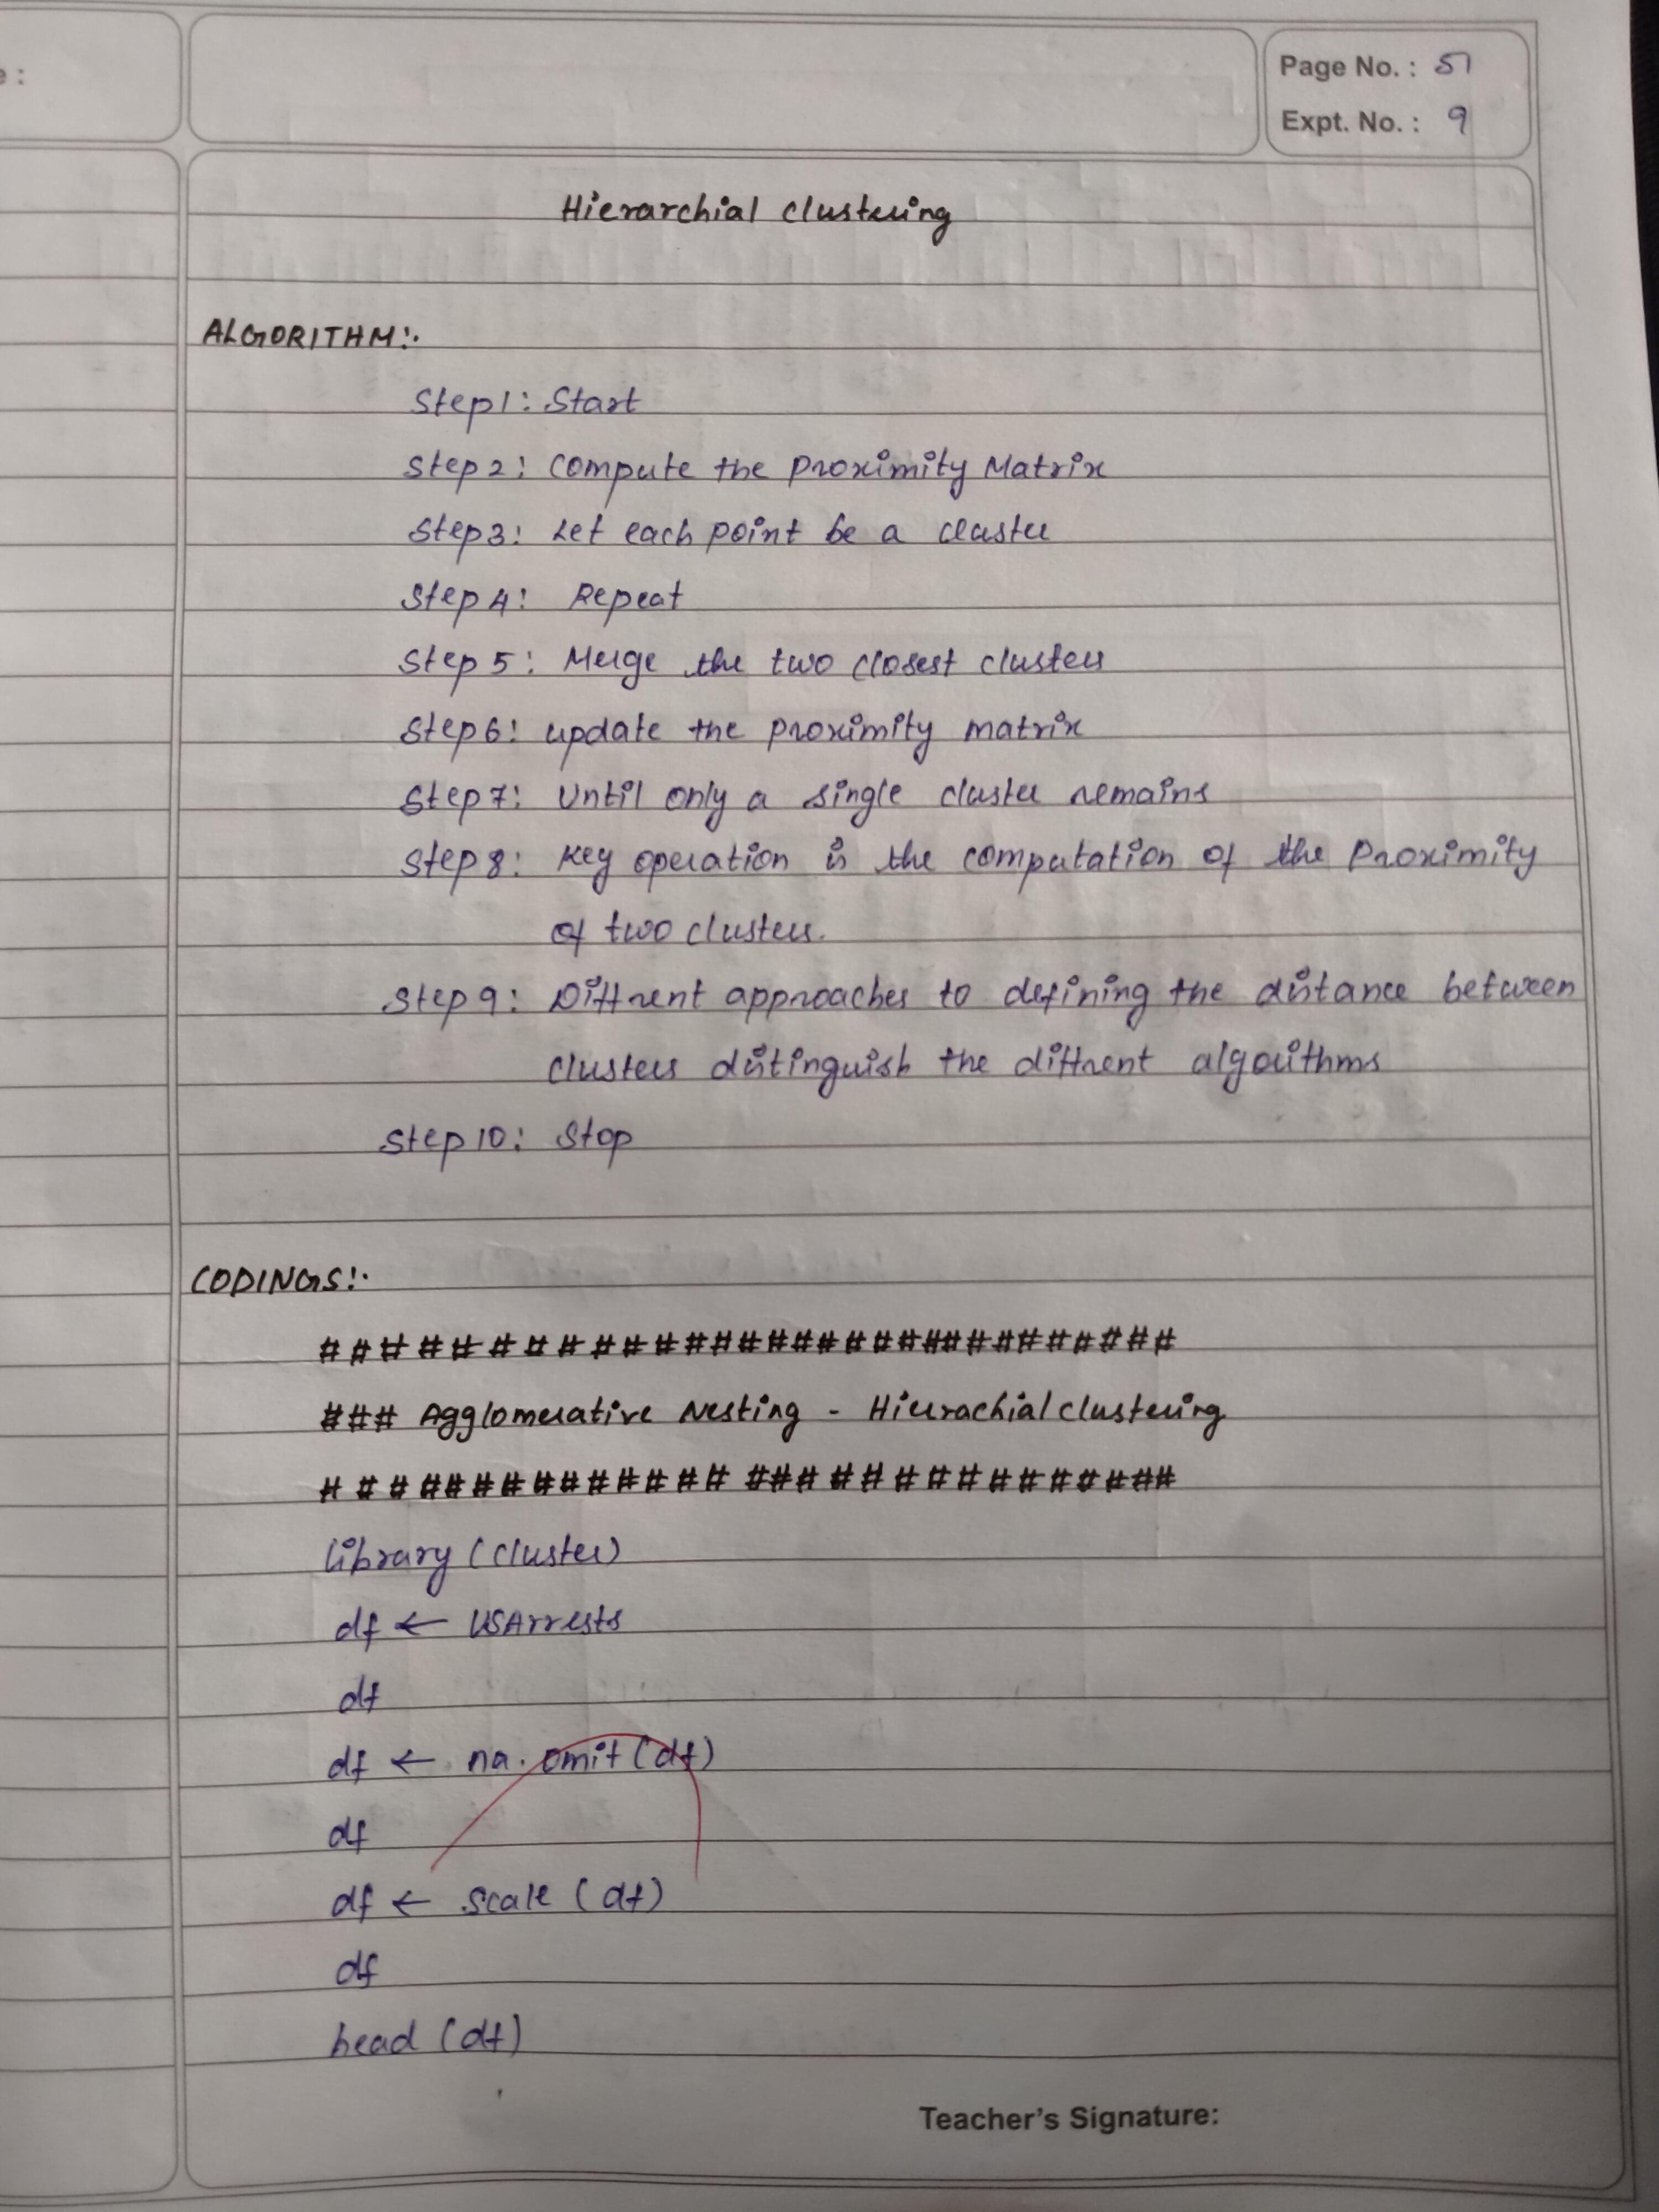 e :
Page No. : 51
Expt. No. : 9
Hierarchial clustering
ALGORITHM:.
Step1: Start
Step2: Compute the Proximity Matrix
Step3: Let each point be a cluster
Step4: Repeat
Step5: Merge the two closest clusters
Step6: update the proximity matrix
Step7: Until only a single cluster remains
Step8: Key operation is the computation of the Proximity
of two clusters.
Step9: Diffrent approaches to defining the distance between
clusters distinguish the diffrent algorithms
Step10: Stop
CODINGS:.
# # # # # # # # # # # # # # # # # # # # # # # # # # # # #
### Agglomerative Nesting - Hierachial clustering
# # # # # # # # # # # # # # # # # # # # # # # # # # # # #
library (cluster)
df ← USArrests
df
df ← na. omit (df)
df
df ← scale (df)
df
head (df)
Teacher's Signature: